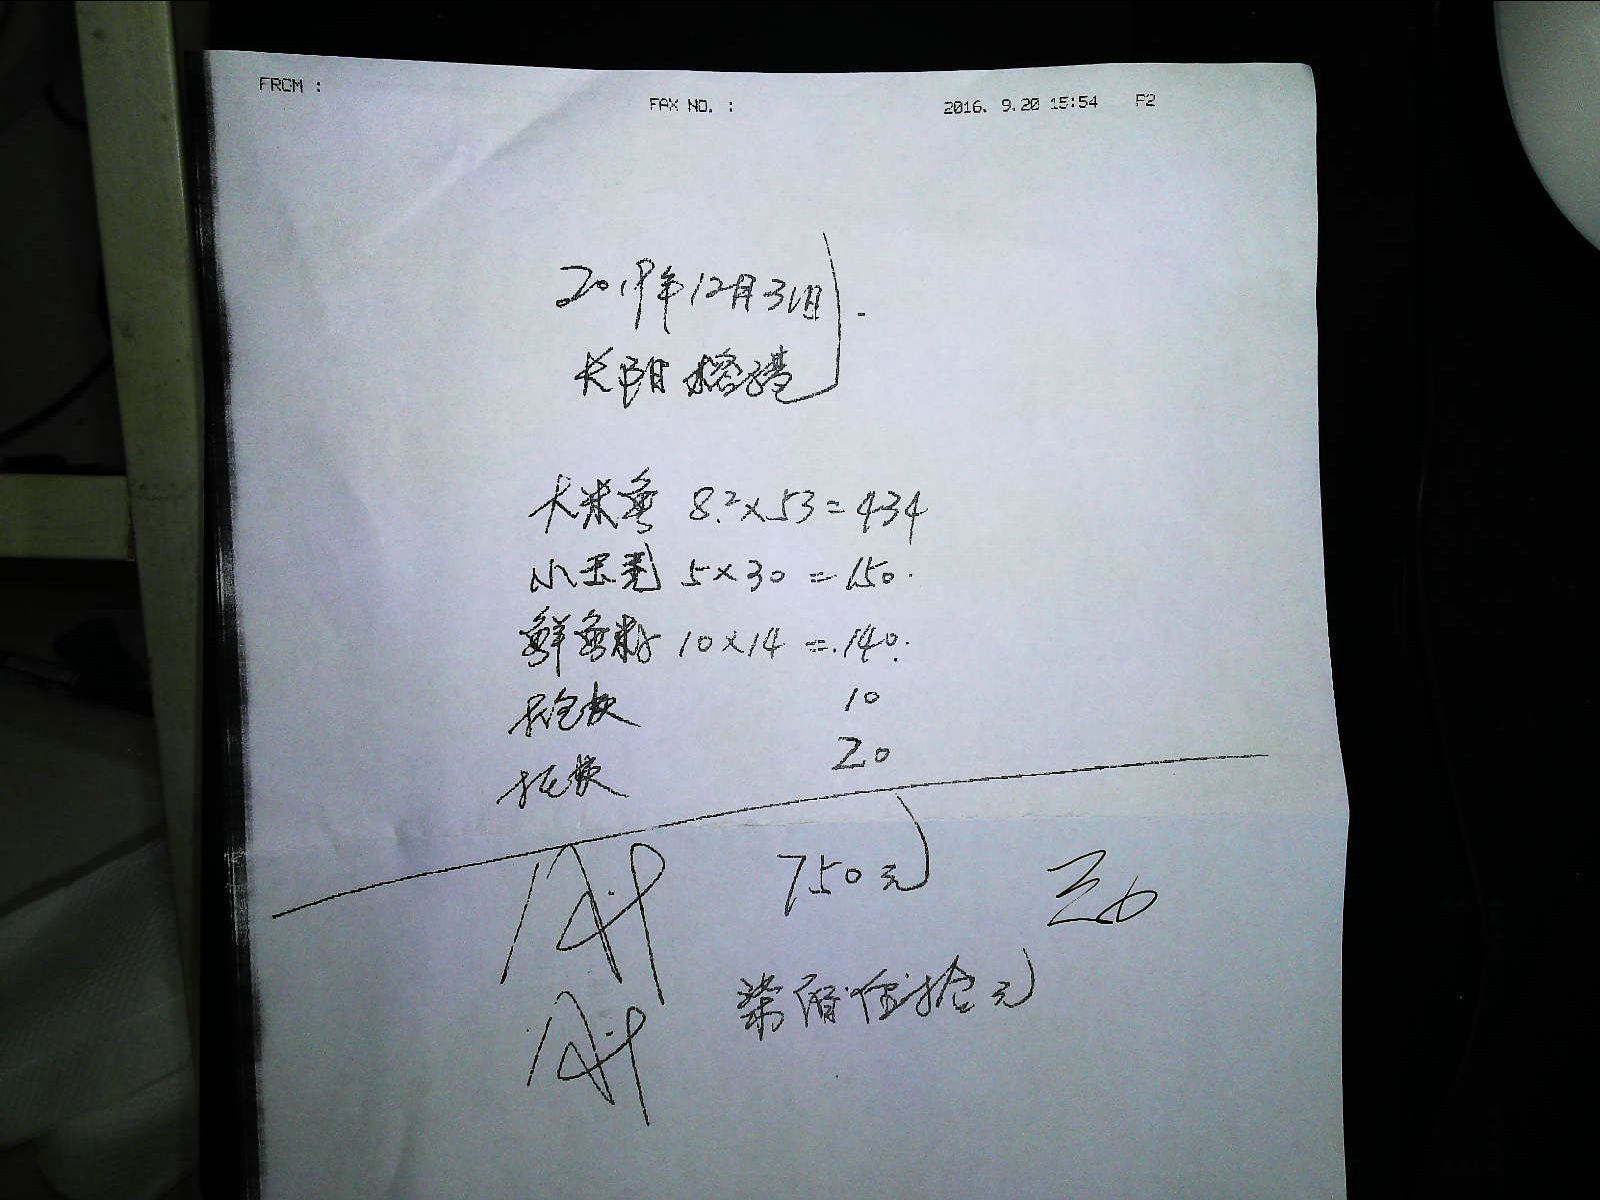 FROM :
FAX NO. :
2016. 9.20 15:54 P2
2019年12月31日
长阳榕港
大米鱼 8.2×53=434
小王毛 5×30=150.
鲜鱼籽 10×14=140.
10
20
750元
柒佰伍拾元